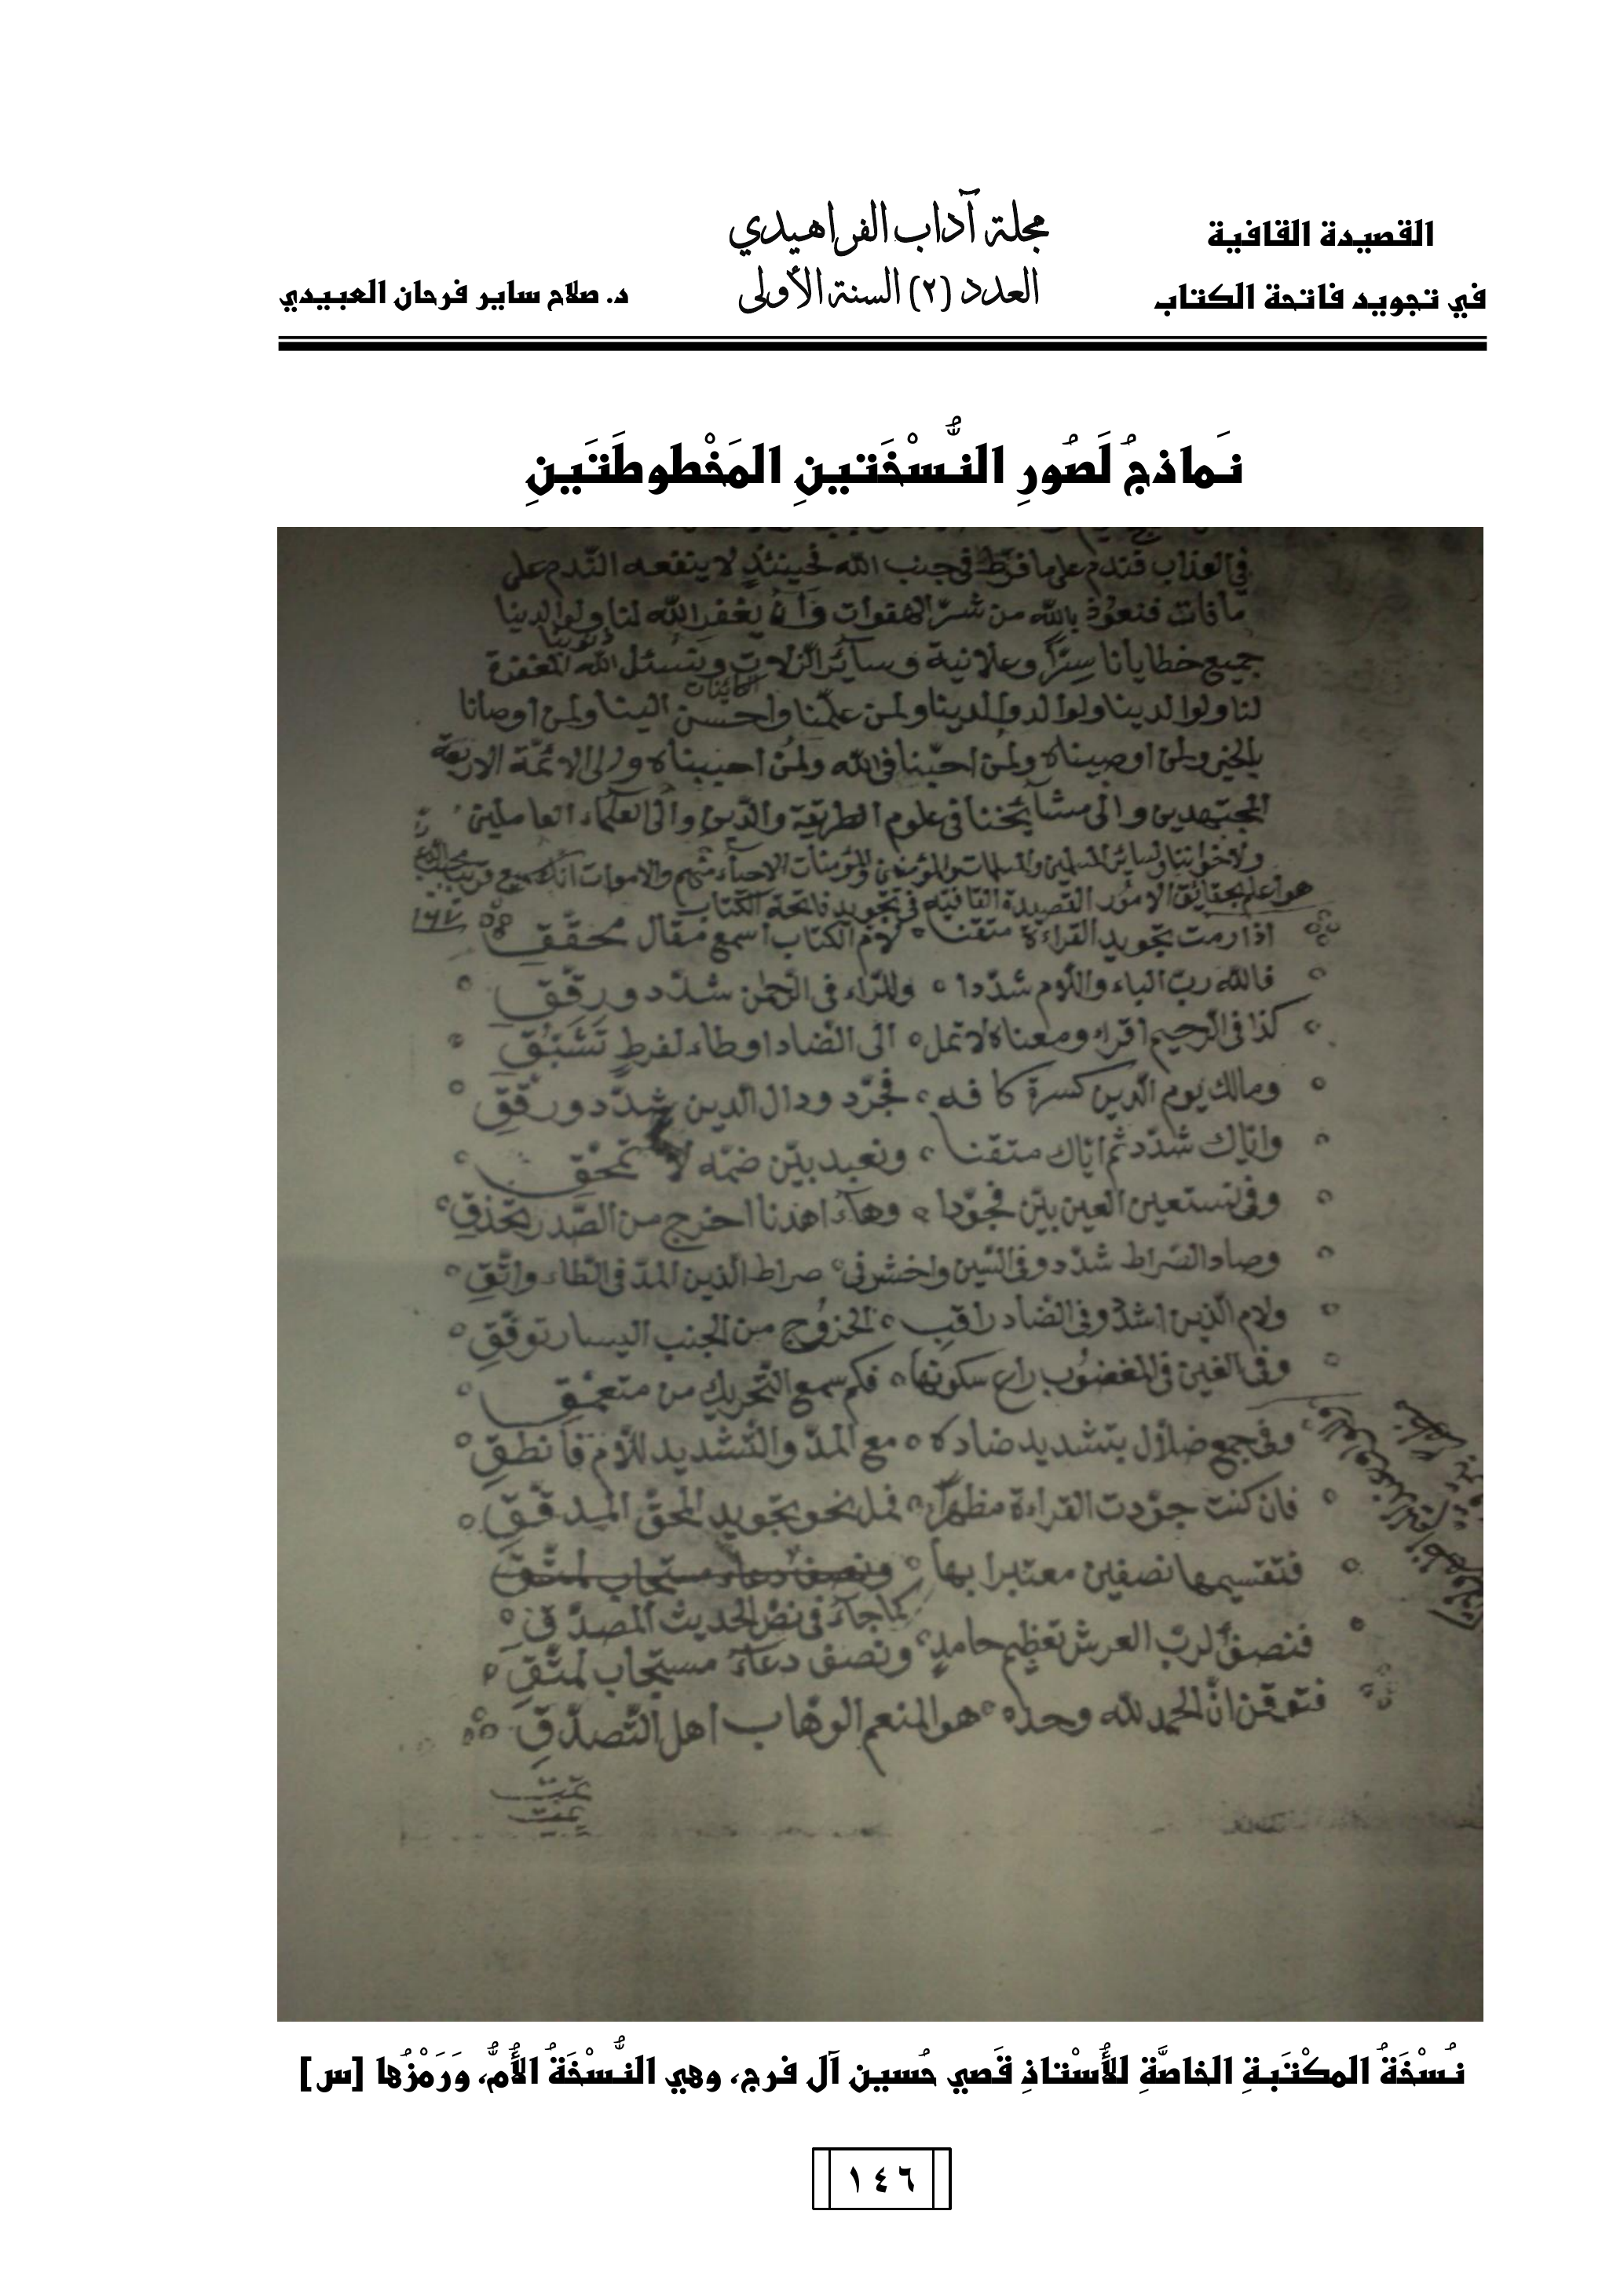 القصيدة القافية
في تجويد فاتحة الكتاب
مجلة آداب الفراهيدي
العدد (٢) السنة الأولى
د. صلاح ساير فرحان العبيدي
نَماذجُ لَصُورِ النُّسْخَتينِ المَخْطوطَتَينِ
في العذاب فتندم على ما فرّط في جنب الله فحينئذٍ لا ينفعه النّدم على
ما فات فنعوذ بالله من شرّ الهفوات وأن يغفر الله لنا ولوالدينا
ذنوبنا
جميع خطايانا سرّاً وعلانية وسائر الزلات ونسئل الله المغفرة
الكائنات
لنا ولوالدينا ولوالد والدينا ولمن علّمنا واحسن الينا ولمن اوصانا
بالخير ولمن اوصيناه ولمن احبّنا في الله ولمن احببناه والى الائمّة الاربعة
المجتهدين والى مشآيخنا في علوم الطريقة والدّين والى العلماء العاملين
ولاخواننا ولسائر المسلمين والمسلمات والمؤمنين والمؤمنات الاحياء منهم والاموات انك سميع قريب مجيب
هو اعلم بحقائق الامور القصيدة القافية في تجويد فاتحة الكتاب
اذا رمت تجويد القراءة متقنا لامّ الكتاب اسمع مقال محقّق
فالله ربّ الباء واللام شدّدا وللرّاء في الرّحمن شدّد ورقّق
كذا في الرحيم اقراء ومعناه لا تمل الى الضاد او طاء لفرط تَشَبُّق
ومالك يوم الدّين كسرة كافه فجرّد ودال الدين شدّد ورقّق
وايّاك شدّد ثم ايّاك متقنا ونعبد بيّن ضمّه لا تمحّق
وفي نستعين العين بيّن مجوّدا وهآء اهدنا اخرج من الصّدر تحذق
وصاد الصّراط شدّد وفي السّين واخش في صراط الّذين المدّ في الطاء واتّق
ولام الّذين اشدد وفي الضاد راقب الخروج من الجنب اليسار توفّق
وفي الغين في المغضوب راع سكونها فكم سمع التّحريك من متعمّق
وفي جمع ضلاّل بتشديد ضاده مع المدّ والتّشديد للاّم فانطق
فان كنت جوّدت القراءة مظهراً فمل نحو تجويد المحقّ المدقّق
فتقسيمها نصفين معتبرا بها ونصف دعاء مستجاب لمتّق
كما جآء في نصّ الحديث المصدّق
فنصفٌ لربّ العرش تعظيم حامدٍ ونصف دعآء مستجاب لمتّق
فتوقن انّ الحمد لله وحده هو المنعم الوهّاب اهل التّصدّق
تمت
تمت
نُسْخَةُ المكْتَبَةِ الخاصَّةِ للأُسْتاذِ قَصي حُسين آل فرج، وهي النُّسْخَةُ الأُمُّ، وَرَمْزُها [س]
١٤٦